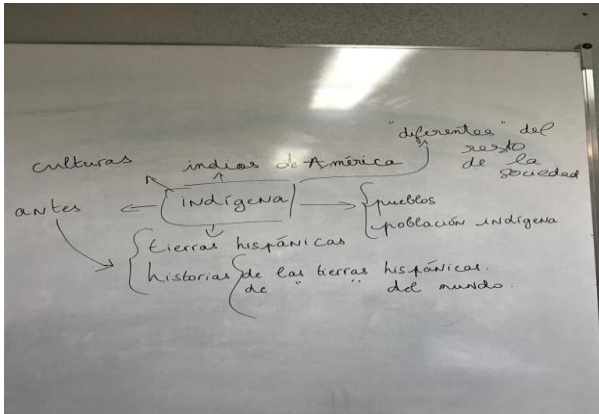 "diferentes" del
resto
de la
sociedad
culturas
indios de América
antes
indígena
pueblos
población indígena
tierras hispánicas
historias
de las tierras hispánicas.
de " " del mundo.